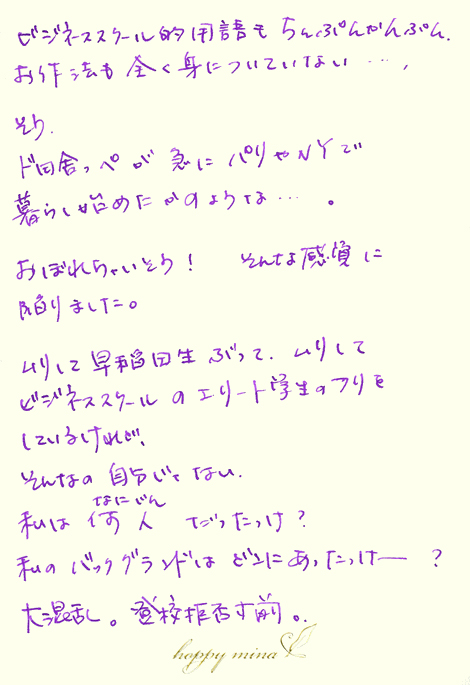 ビジネススクール的用語もちんぷんかんぷん.
お作法も全く身についていない…,
そう.
ド田舎っぺが急にパリやNYで
暮らし始めたかのような…。
おぼれちゃいそう! そんな感覚に
陥りました。
ムリして早稲田生ぶって. ムリして
ビジネススクールのエリート学生のフリを
しているけれど,
そんなの自分じゃない.
なにじん
私は何人だったっけ?
私のバックグランドはどこにあったっけー?
大混乱。登校拒否寸前。
happy mina